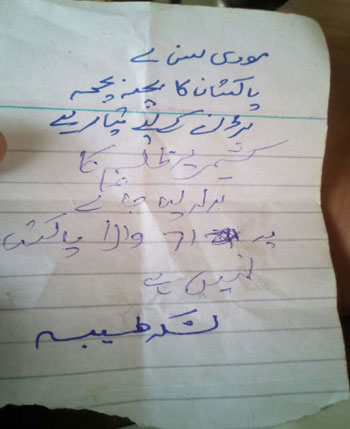 مودی سن لے
پاکستان کا بچہ بچہ
لڑنے کے لئے تیار ہے
کشمیر پر قبضہ کا
بدلہ لیا جائے
یہ 71 والا پاکستان
نہیں ہے
لشکر طیبہ